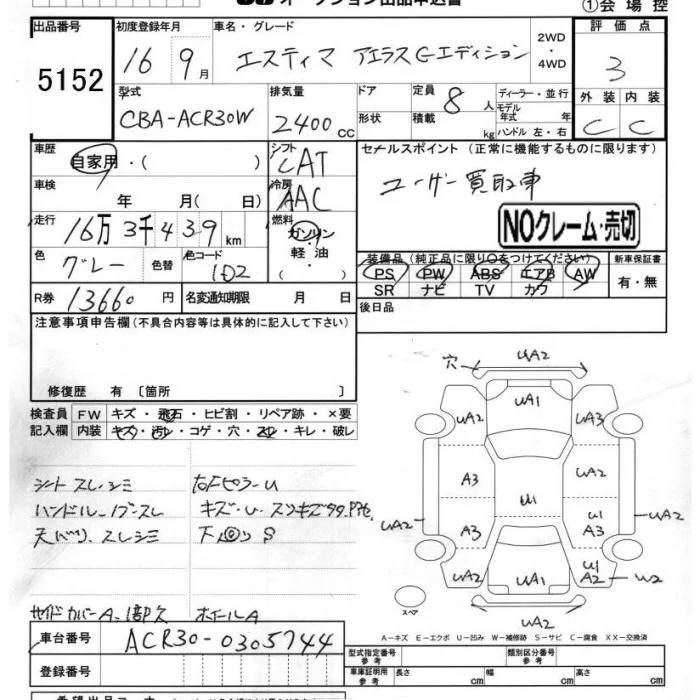 オークション出品申込書
①会場控
出品番号 初度登録年月 車名・グレード 評価点
5152 16 9月 エスティマ アエラスGエディション 2WD・4WD 3
型式 排気量 ドア 定員 ディーラー・並行 外装 内装
CBA-ACR30W 2400CC 形状 積載 8人 kg モデル年式 年 ハンドル 左・右 C C
車歴 自家用・( ) シフト CAT セールスポイント (正常に機能するものに限ります)
車検 年 月( 日) 冷房 AAC ユーザー買取車
走行 16万3千439km 燃料 ガソリン・軽油・ NOクレーム・売切
色 グレー 色替 色コード 1D2 装備品(純正品に限り○をつけてください) 新車保証書
PS PW ABS エアB AW 有・無
SR ナビ TV カワ
R券 13660円 名変通知期限 月 日 後日品
注意事項申告欄(不具合内容等は具体的に記入して下さい)
修復歴 有 〔箇所 〕
検査員 FW キズ・飛石・ヒビ割・リペア跡・×要
記入欄 内装 キズ・汚レ・コゲ・穴・スレ・キレ・破レ
穴 UA2
UA1
UA2 UA3
A3 UA2
UA2 U1 U1 UA2
A3 A3
UA2 UA1 U1 A2 W2
UA2
スペア
シートスレ、シミ 右Fピラー U
ハンドル、ノブ スレ
天バリ、スレシミ
サイドカバーA、部欠 ホイールA
A－キズ E－エクボ U－凹み W－補修跡 S－サビ C－腐食 XX－交換済
車台番号 ACR30-0305744 型式指定番号 参考 類別区分番号 参考
登録番号 車庫証明用 参考 長さ cm 幅 cm 高さ cm